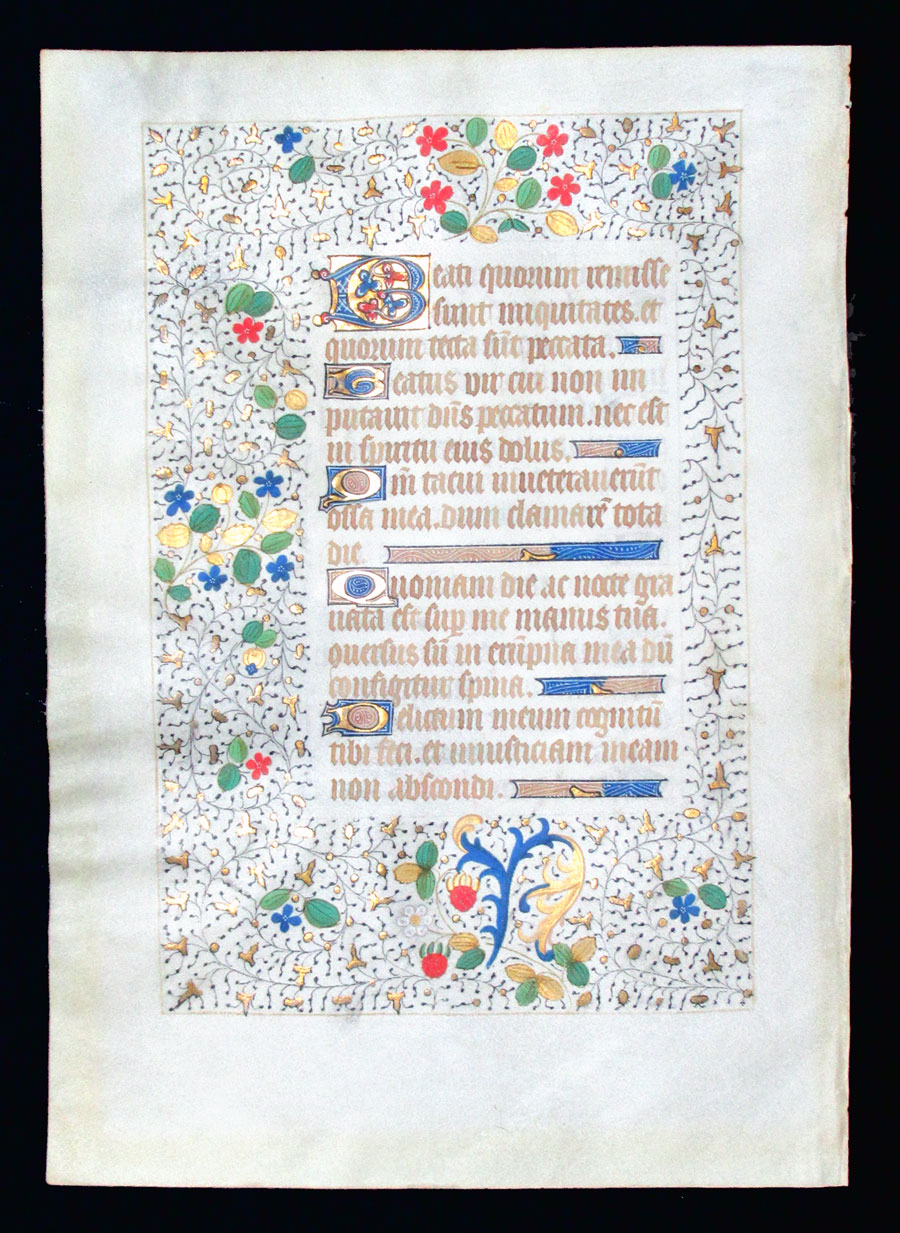 Beati quorum remisse
sunt iniquitates. et
quorum tecta sūt peccata.
Beatus vir cui non im
putauit dn̄s peccatum. nec est
in spiritu eius dolus.
Qm̄ tacui inueterauerūt
ossa mea. dum clamarē tota
die
Quoniam die ac nocte gra
uata est suꝑ me manus tua.
ꝯuersus sū in erūpna mea dū
configitur spina.
Delictum meum cognitū
tibi feci. et iniusticiam meam
non abscondi.